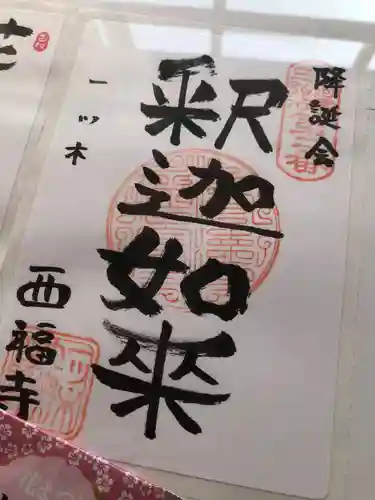 降誕会
釈迦如来
一ツ木
西福寺